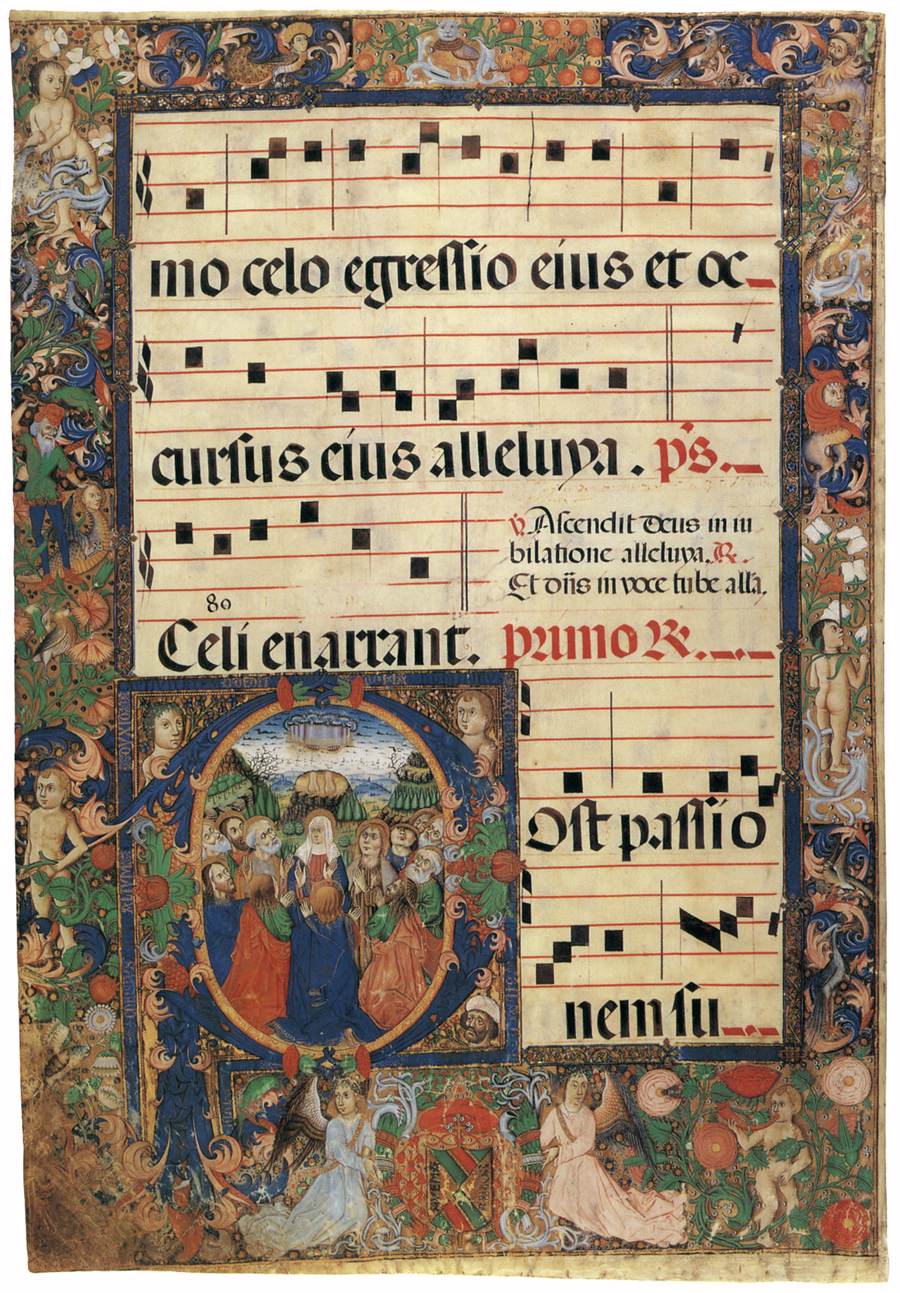 mo celo egressio eius et oc
cursus eius alleluya. ps.
℣. Ascendit deus in iu
bilatione alleluya. ℟.
Et dñs in voce tube alla.
80
Celi enarrant. primo ℟.
Ost passio
nem su